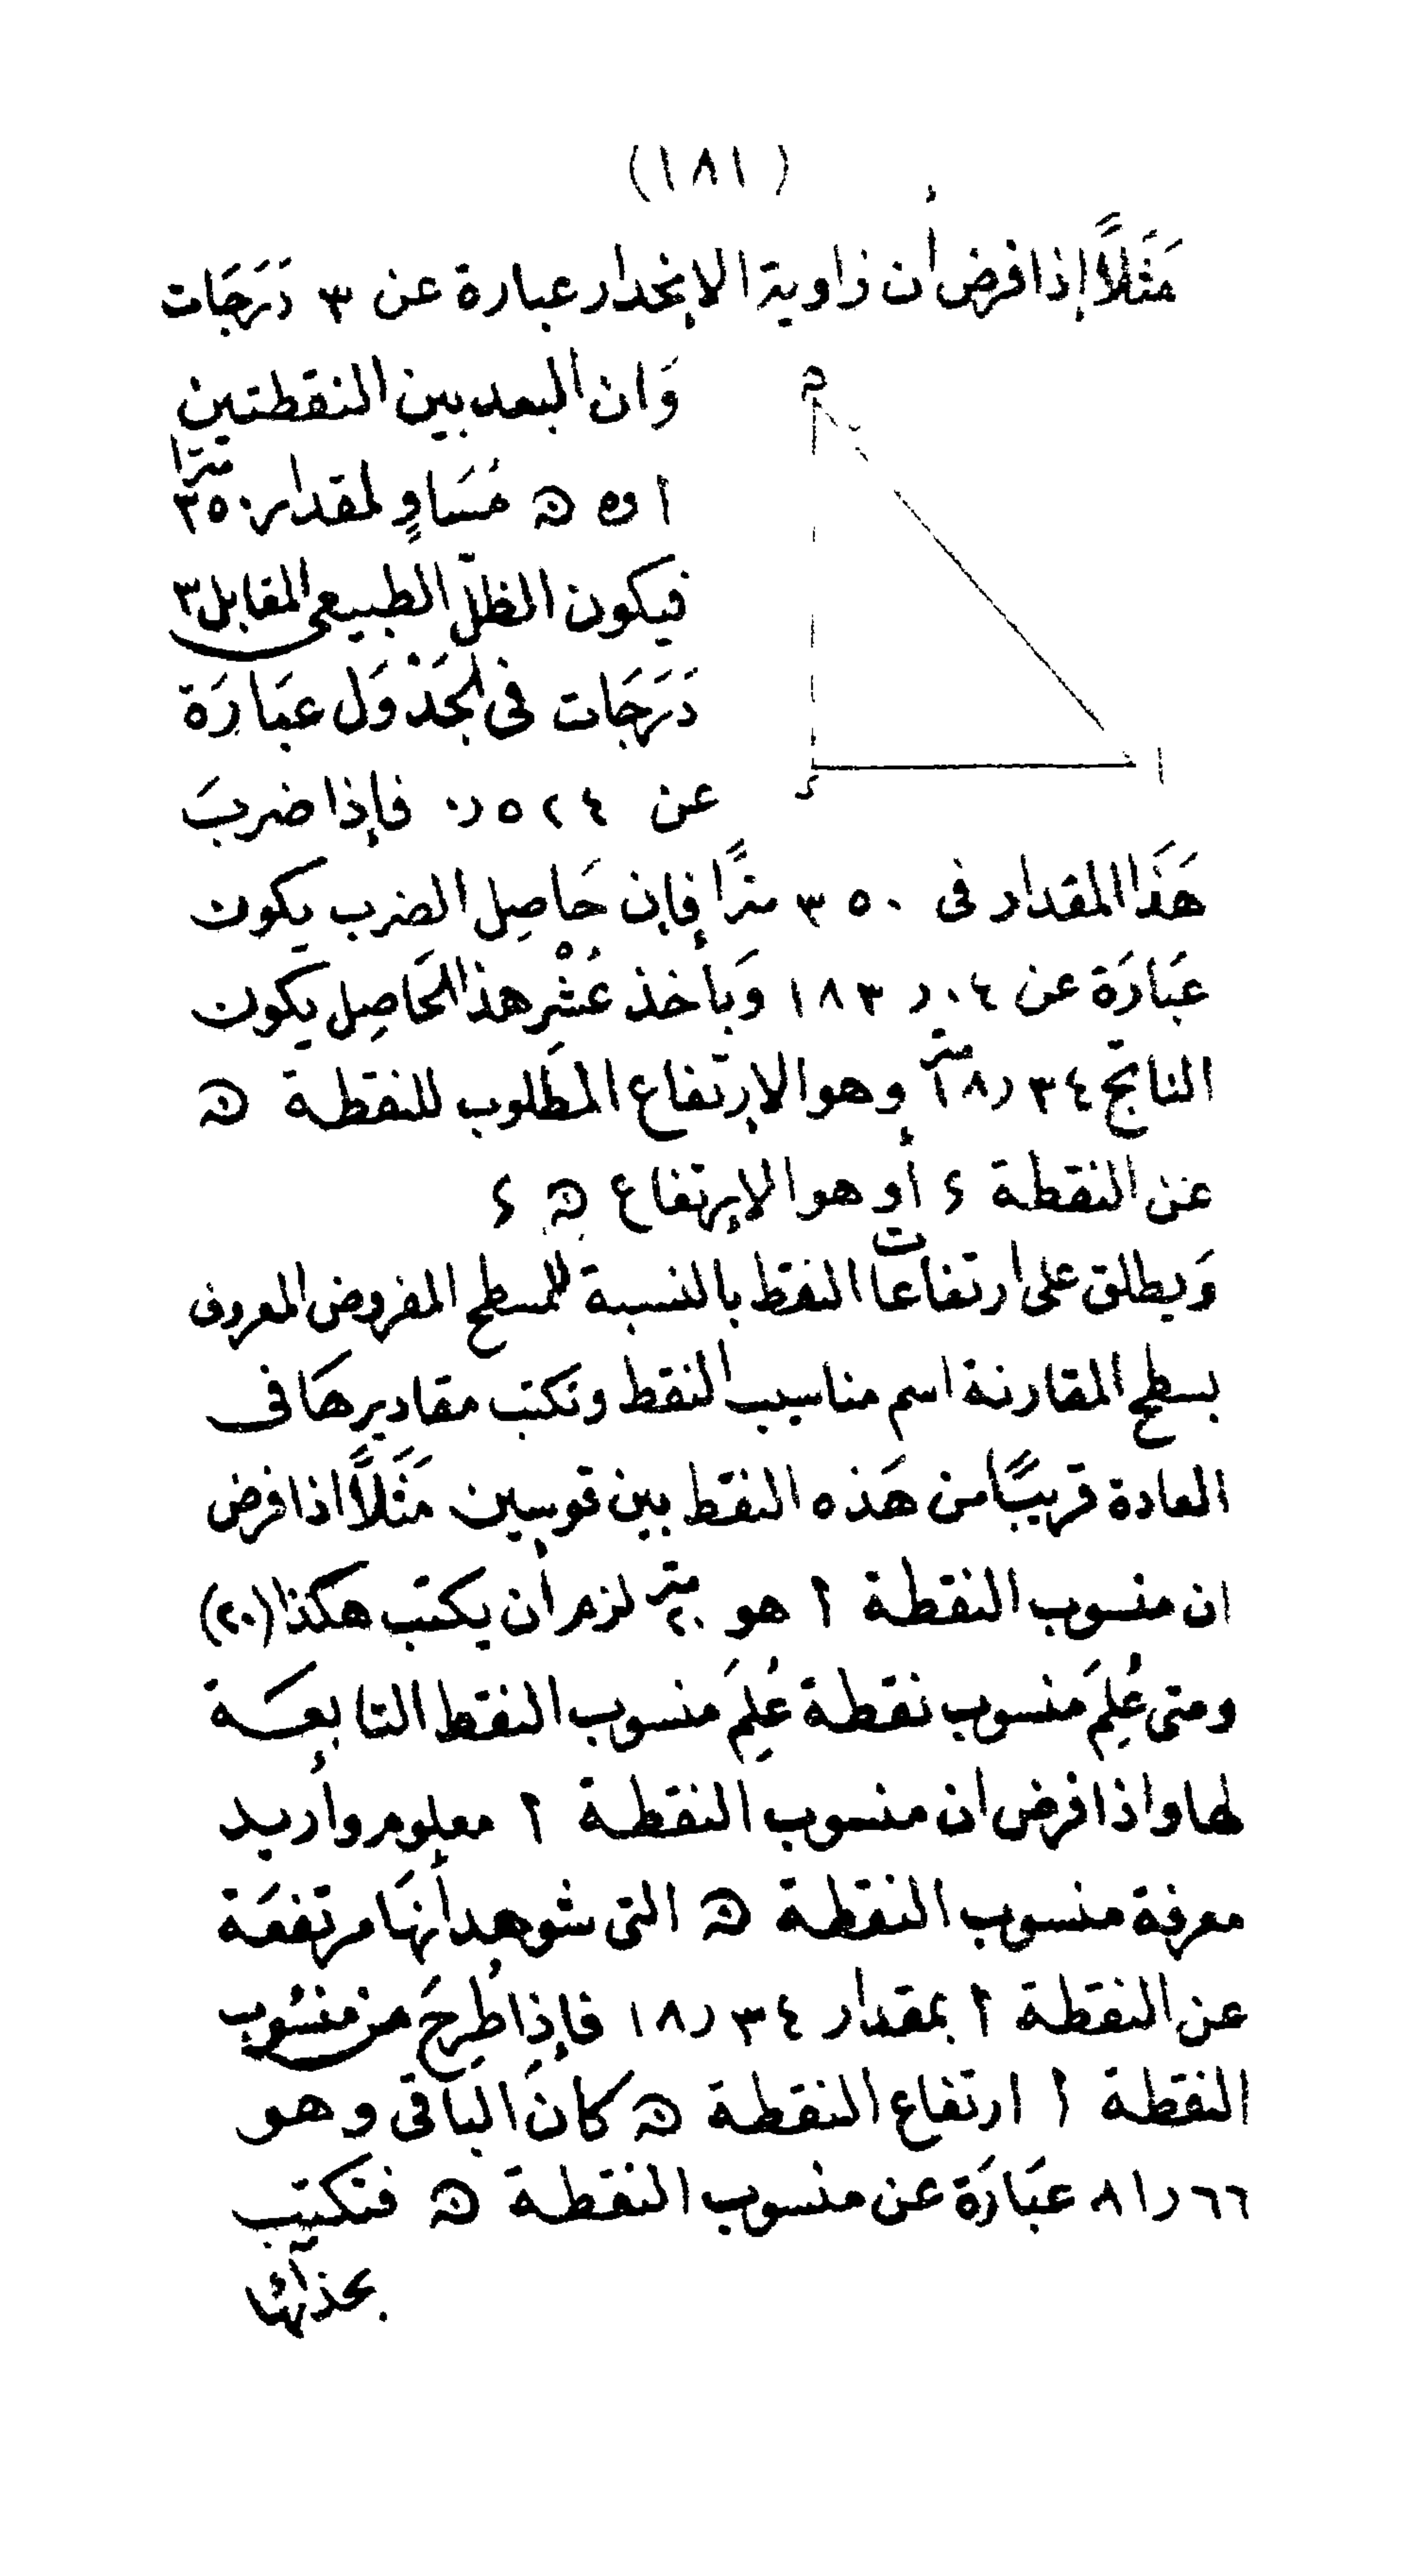 (١٨١)
مَثَلاً إذا فرض أن زاوية الإنحدار عبارة عن ٣ دَرَجَات
وَان البعد بين النقطتين
ا و ه مُسَاوٍ لمقدار ٣٥٠ مترًا
فيكون الظلّ الطبيعى المقابل ٣
دَرَجَات فى الجَدْوَل عبَارَة
عن ٥٢٤ر٠ فإذا ضربَ
هَذَا المقدار فى ٣٥٠ مترًا فإن حَاصِل الضرب يكون
عبَارَة عن ٠٤ر١٨٣ وَبأخذ عُشْر هذا الحَاصِل يكون
الناتج ٣٤ر١٨ متر وهو الإرتفاع المطَلوب للنقطة ه
عن النقطة ء أو هو الإرتفاع ه ء
وَيطلق على ارتفاعات النقط بالنسبة للسطح المفروض المعروف
بسطح المقارنة اسم مناسيب النقط وتكتب مقاديرهَا فى
العادة قريبًا من هَذه النقط بين قوسين مَثَلاً اذا فرض
ان منسوب النقطة ا هو ٢٠ متر لزم أن يكتب هكذا (٢٠)
ومتى عُلِمَ منسوب نقطة عُلِمَ منسوب النقط التابعَة
لها واذا فرض ان منسوب النقطة ا معلوم وأريد
معرفة منسوب النقطة ه التى شوهد أنهَا مرتفعَة
عن النقطة ا بمقدار ٣٤ر١٨ فإذا طُرِحَ من منسُوب
النقطة ا ارتفاع النقطة ه كانَ الباقى وهو
٦٦ر٨١ عبَارَة عن منسوب النقطة ه فتكتب
بحذائها
ه
ء
ا